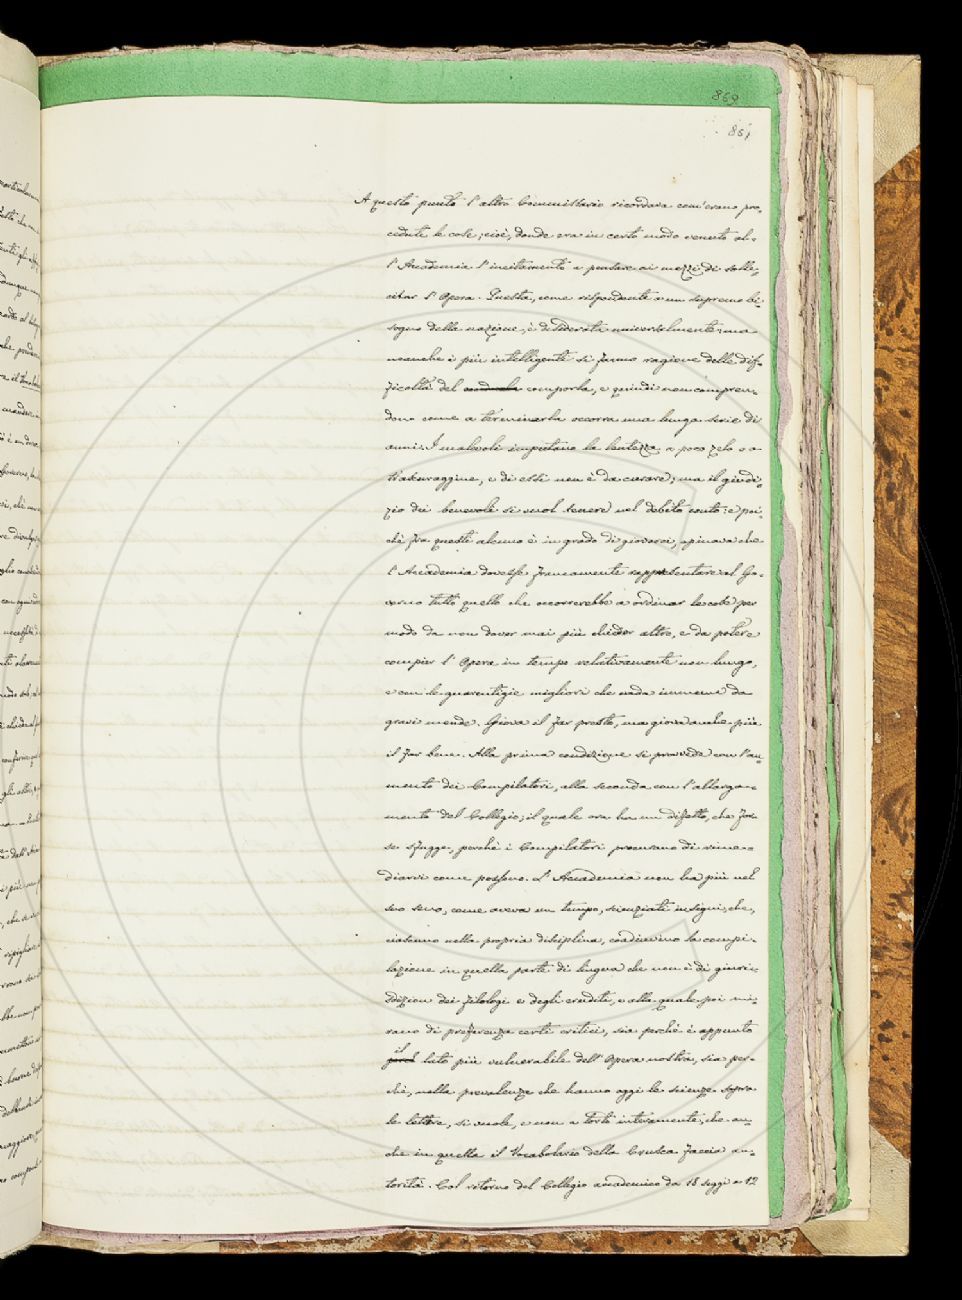 869
861
A questo punto l'altro Commissario ricordava com'erano pro-
cedute le cose; cioè, donde era in certo modo venuto al-
l'Accademia l'incitamento a pensare ai mezzi di solle-
citar l'Opera. Questa, come rispondente a un supremo bi-
sogno della nazione, è desiderata universalmente: ma
neanche i più intelligenti si fanno ragione delle dif-
ficoltà del comporla, e quindi non compren-
dono come a terminarla occorra una lunga serie di
anni. I malevoli imputano la lentezza a poco zelo o a
trascuraggine, e di essi non è da curare; ma il giudi-
zio dei benevoli si vuol tenere nel debito conto: e poi-
chè fra questi alcuno è in grado di giovarci, opinava che
l'Accademia dovesse francamente rappresentare al Go-
verno tutto quello che occorrerebbe a ordinar le cose per
modo da non dover mai più chieder altro, e da potere
compier l'Opera in tempo relativamente non lungo,
e con le guarentigie migliori che vada immune da
gravi mende. Giova il far presto, ma giova anche più
il far bene. Alla prima condizione si provvede con l'au-
mento dei Compilatori, alla seconda con l'allarga-
mento del Collegio; il quale ora ha un difetto, che for-
se sfugge, perchè i Compilatori procurano di rime-
diarvi come possono. L'Accademia non ha più nel
suo seno, come aveva un tempo, scienziati insigni, che,
ciascuno nella propria disciplina, coadiuvino la compi-
lazione in quella parte di lingua che non è di giuris-
dizion dei filologi e degli eruditi, e alla quale poi mi-
rano di preferenza certi critici, sia perchè è appunto
il
lato più vulnerabile dell'Opera nostra, sia per-
chè, nella prevalenza che hanno oggi le scienze sopra
le lettere, si vuole, e non a torto interamente, che an-
che in quella il Vocabolario della Crusca faccia au-
torità. Col ritorno del Collegio accademico da 18 seggi a 12